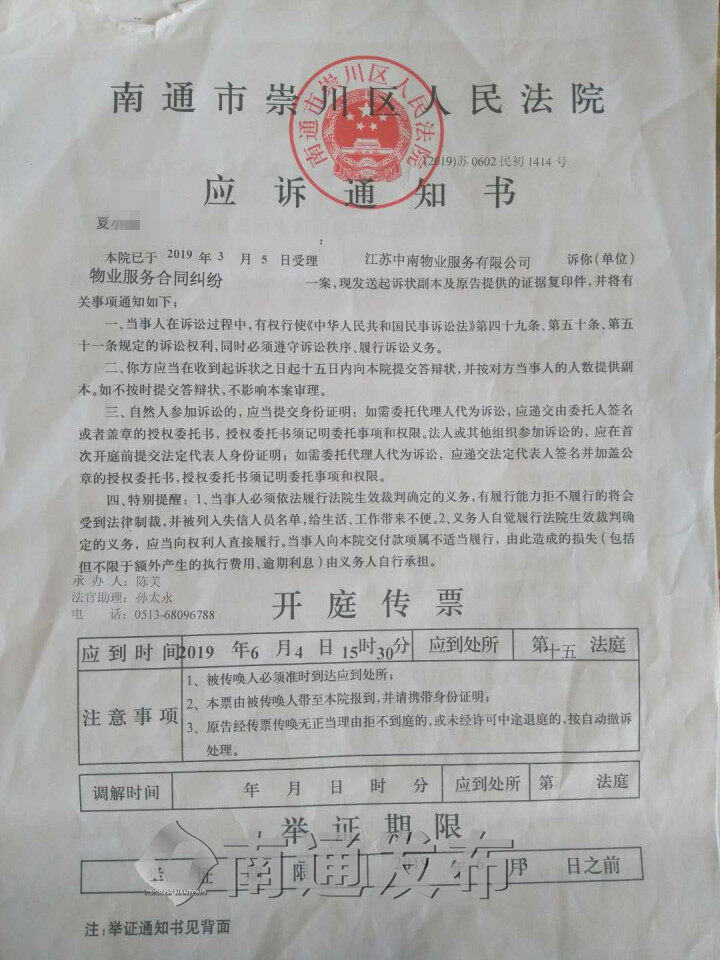 南通市崇川区人民法院
南通市崇川区人民法院
(2019)苏 0602 民初 1414 号
应诉通知书
夏小
:
本院已于 2019 年 3 月 5 日受理 江苏中南物业服务有限公司 诉你(单位)
物业服务合同纠纷 一案,现发送起诉状副本及原告提供的证据复印件,并将有
关事项通知如下;
一、当事人在诉讼过程中,有权行使《中华人民共和国民事诉讼法》第四十九条、第五十条、第五
十一条规定的诉讼权利,同时必须遵守诉讼秩序、履行诉讼义务。
二、你方应当在收到起诉状之日起十五日内向本院提交答辩状,并按对方当事人的人数提供副
本。如不按时提交答辩状,不影响本案审理。
三、自然人参加诉讼的,应当提交身份证明:如需委托代理人代为诉讼,应递交由委托人签名
或者盖章的授权委托书,授权委托书须记明委托事项和权限。法人或其他组织参加诉讼的,应在首
次开庭前提交法定代表人身份证明;如需委托代理人代为诉讼,应递交法定代表人签名并加盖公
章的授权委托书,授权委托书须记明委托事项和权限。
四、特别提醒:1、当事人必须依法履行法院生效裁判确定的义务,有履行能力拒不履行的将会
受到法律制裁,并被列入失信人员名单,给生活、工作带来不便。2、义务人自觉履行法院生效裁判确
定的义务,应当向权利人直接履行。当事人向本院交付款项属不适当履行,由此造成的损失(包括
但不限于额外产生的执行费用、逾期利息)由义务人自行承担。
承 办 人:陈美
法官助理:孙太永
电 话:0513-68096788
开庭传票
应到时间 2019 年 6 月 4 日 15 时 30 分 应到处所 第十五 法庭
注意事项
1、被传唤人必须准时到达应到处所;
2、本票由被传唤人带至本院报到,并请携带身份证明;
3、原告经传票传唤无正当理由拒不到庭的,或未经许可中途退庭的,按自动撤诉
处理。
调解时间 年 月 日 时 分 应到处所 第 法庭
举证期限
举 证 限 月 日之前
南通发布
VOICE OF NANTONG
注:举证通知书见背面